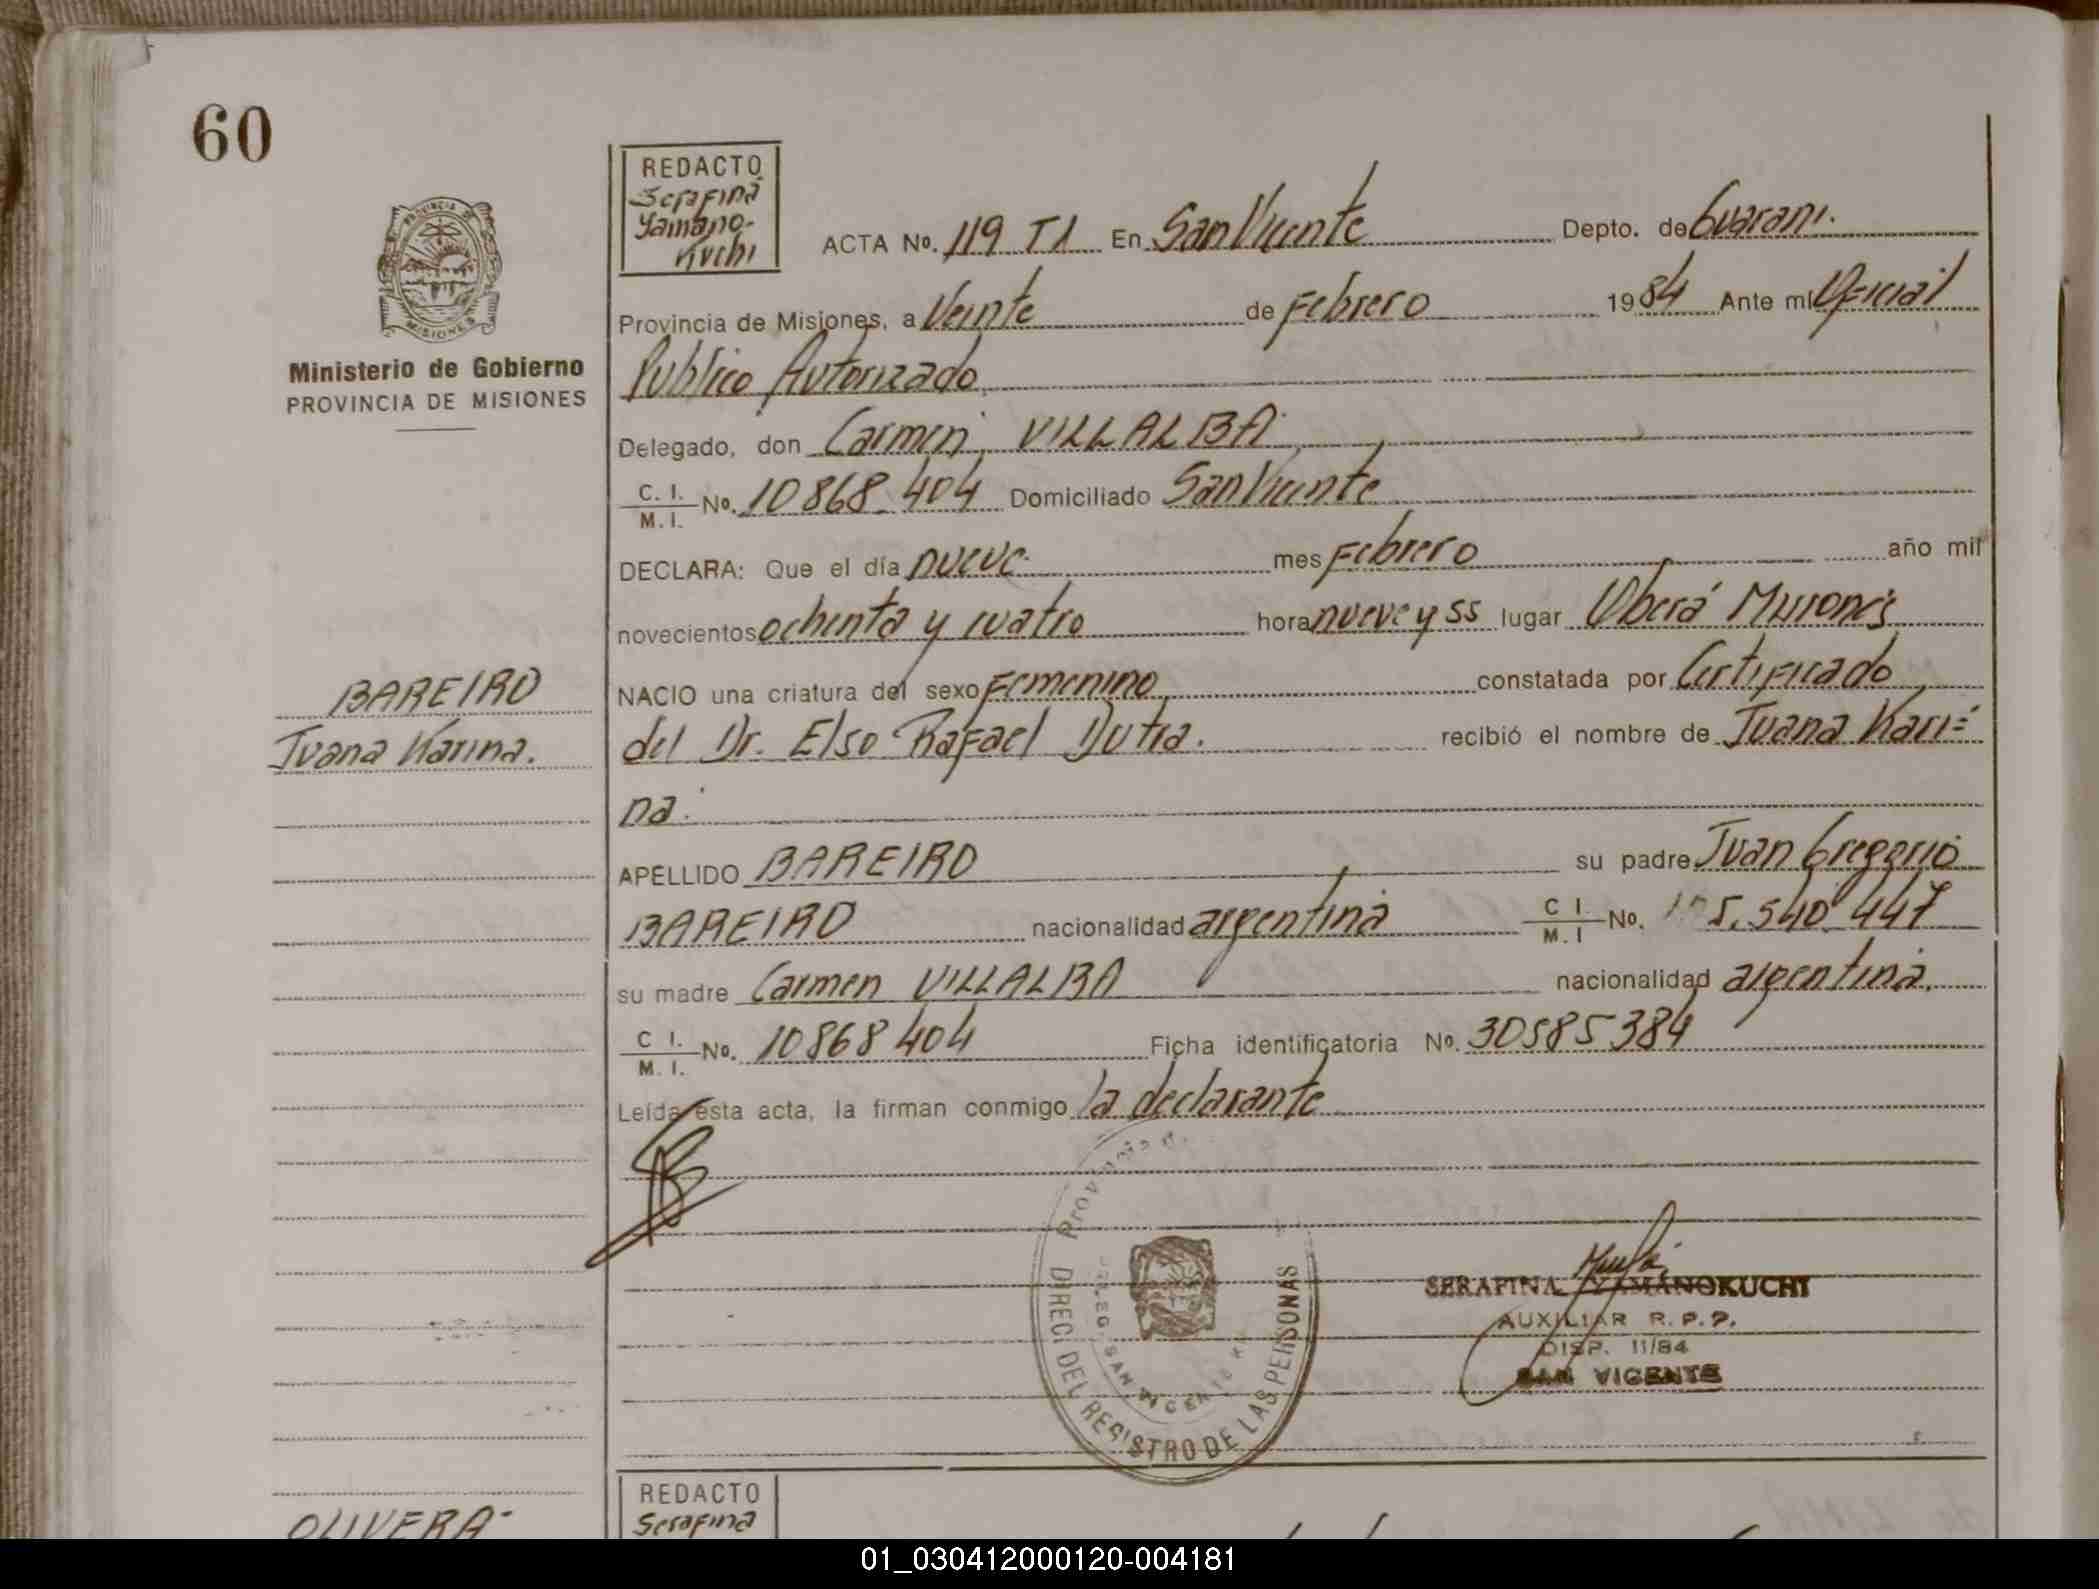 60
REDACTO
Serafina
Yamano-
kuchi
ACTA No. 119 T1 En San Vicente Depto. de Guarani.
PROVINCIA DE
MISIONES
Ministerio de Gobierno
PROVINCIA DE MISIONES
Provincia de Misiones, a Veinte de Febrero 1984 Ante mí Oficial
Publico Autorizado
Delegado, don Carmen VILLALBA
C. I. / M. I. No. 10 868 404 Domiciliado San Vicente
DECLARA: Que el día nueve mes Febrero año mil
novecientos ochenta y cuatro hora nueve y 55 lugar Oberá Misiones
BAREIRO
Juana Karina.
NACIO una criatura del sexo Femenino constatada por Certificado
del Dr. Elso Rafael Dutra. recibió el nombre de Juana Kari=
na.
APELLIDO BAREIRO su padre Juan Gregorio
BAREIRO nacionalidad argentina C I / M. I No. 5.540 447
su madre Carmen VILLALBA nacionalidad argentina.
C I. / M. I. No. 10868 404 Ficha identificatoria No. 30585384
Leída esta acta, la firman conmigo la declarante
Provincia
DIREC. DEL REGISTRO DE LAS PERSONAS
SAN VICENTE
SERAFINA YAMANOKUCHI
AUXILIAR R. P. P.
DISP. 11/84
SAN VICENTE
OLIVERA-
REDACTO
Serafina
01_030412000120-004181